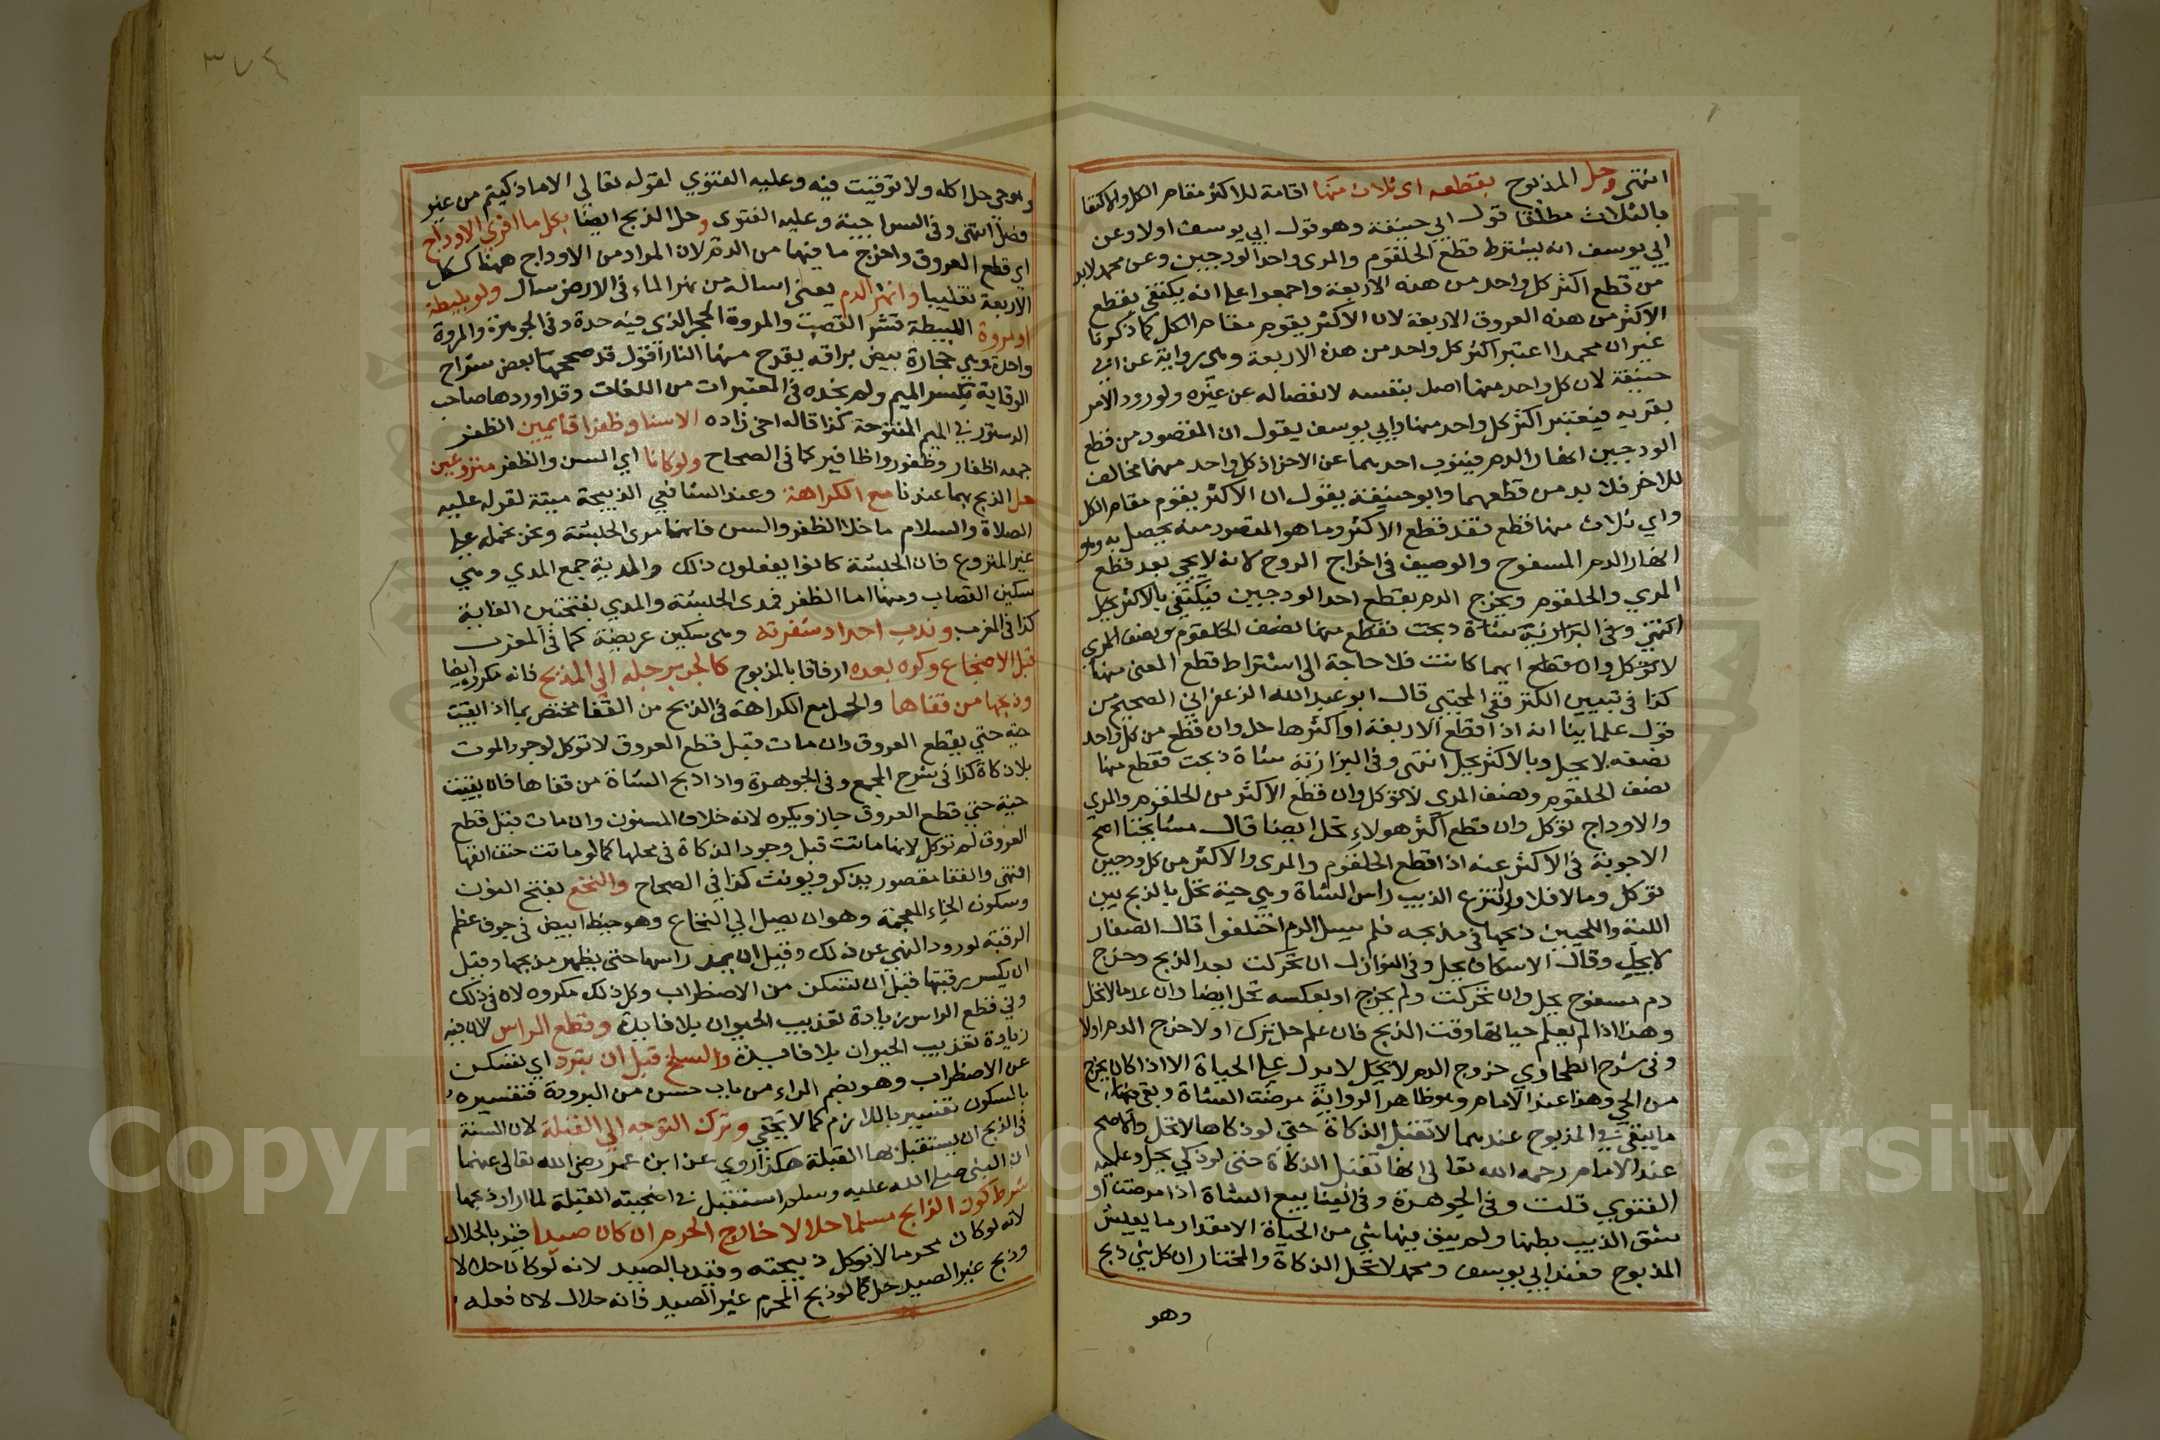 انتهى وحل المذبوح بقطعه اى ثلاث منها اقامة للاكثر مقام الكل والاكتفا
بالثلاث مطلقا قول ابي حنيفة وهو قول ابي يوسف اولا وعن
ابي يوسف انه يشترط قطع الحلقوم والمرى واحد الودجين وعن محمد لابد
من قطع اكثر كل واحد من هذه الاربعة واجمعوا على انه يكتفى بقطع
الاكثر من هذه العروق الاربعة لان الاكثر يقوم مقام الكل كما ذكرنا
غير ان محمدا اعتبر اكثر كل واحد من هذه الاربعة وهى رواية عن ابي
حنيفة لان كل واحد منها اصل بنفسه لانفصاله عن غيره ولورود الامر
بفريه فيعتبر اكثر كل واحد منها وابي يوسف يقول ان المقصود من قطع
الودجين انهار الدم فينوب احدهما عن الاخر اذ كل واحد منهما مخالف
للاخر فلا بد من قطعهما وابو حنيفة يقول ان الاكثر يقوم مقام الكل
واي ثلاث منها قطع فقد قطع الاكثر وما هو المقصود منه يحصل به وهو
انهار الدم المسفوح والوصيف فى اخراج الروح لانه لا يحيى بعد قطع
المري والحلقوم ويخرج الدم بقطع احد الودجين فيكتفى بالاكثر بكل
انتهى وفى البزازية شاة ذبحت فقطع منها نصف الحلقوم ونصف المري
لا تؤكل وان قطع ايهما كانت فلا حاجة الى اشتراط قطع المعنى منها
كذا فى تبيين الكنز ففى المجتبى قال ابو عبد الله الزعفراني الصحيح من
قول علماينا انه اذا قطع الاربعة او اكثرها حل وان قطع من كل واحد
نصفه لا يحل وبالاكثر يحل انتهى وفى البزازية شاة ذبحت فقطع منها
نصف الحلقوم ونصف المري لا تؤكل وان قطع الاكثر من الحلقوم والمري
والاوداج تؤكل وان قطع اكثر هولاء تحل ايضا قال مشايخنا اصح
الاجوبة فى الاكثر عنه اذا قطع الحلقوم والمرى والاكثر من كل ودجين
تؤكل وما لا فلا ولو انتزع الذيب راس الشاة وهي حية تحل بالذبح بين
اللبة واللحيين ذبحها فى مذبحه فلم يسل الدم اختلفوا قال الصفار
لا يحل وقال الاسكاف يحل وفى النوازل ان تحركت بعد الذبح وخرج
دم مسفوح يحل وان تحركت ولم يخرج او بعكسه تحل ايضا وان عدما لا تحل
وهذا اذا لم يعلم حياتها وقت الذبح فان علم حل تحرك او لا خرج الدم او لا
وفى شرح الطحاوي خروج الدم لا يحل لا يدل على الحياة الا اذا كان يخرج
من الحي وهذا عند الامام وهو ظاهر الرواية مرضت الشاة وبقى فيها
ما يبقى في المذبوح عندهما لا تقبل الذكاة حتى لو ذكاها لا تحل والاصح
عند الامام رحمه الله تعالى انها تقبل الذكاة حتى لو ذكي يحل وعليه
الفتوى قلت وفى الجوهرة وفى الينابيع الشاة اذا مرضت او
شق الذيب بطنها ولم يبق فيها شي من الحياة الا مقدار ما يعيش
المذبوح فعند ابي يوسف ومحمد لا تحل الذكاة والمختار ان كل شي ذبح
وهو
٣٧٤
وهو حي حل اكله ولا توقيت فيه وعليه الفتوي لقوله تعالى الا ما ذكيتم من غير
فصل انتهى وفى السراجية وعليه الفتوى وحل الذبح ايضا بكل ما افري الاوداج
اي قطع العروق واخرج ما فيها من الدم لان المراد من الاوداج هنا كل
الاربعة تغليبا وانهر الدم يعنى اساله من نهر الماء فى الارض سال ولو بليطة
او مروة الليطة قشر القصب والمروة الحجر الذى فيه حدة وفى الجوهرة والمروة
واحدة وهي حجارة بيض براقة يقدح منها النار اقول قد صححها بعض شراح
الوقاية بكسر الميم ولم نجده فى المعتبرات من اللغات وقد اوردها صاحب
الدستور في الميم المفتوحة كذا قاله اخى زاده الا سنا وظفرا قائمين الظفر
جمعه اظفار وظفور واظافير كما فى الصحاح ولو كانا اي السن والظفر منزوعين
حل الذبح بهما عندنا مع الكراهة وعند الشافعي الذبيحة ميتة لقوله عليه
الصلاة والسلام ما خلا الظفر والسن فانهما مدى الحبشة ونحن نحمله على
غير المنزوع فان الحبشة كانوا يفعلون ذلك والمدية جمع المدي وهي
سكين القصاب ومنها اما الظفر فمدى الحبشة والمدي بفتحتين الغاية
كذا فى المغرب وندب احداد شفرته وهى سكين عريضة كما فى المغرب
قبل الاضجاع وكره بعده ارفاقا بالمذبوح كالجر برجله الى المذبح فانه مكروه ايضا
وذبحها من قفاها والحل مع الكراهة فى الذبح من القفا مختص بما اذا بقيت
حية حتى يقطع العروق وان مات قبل قطع العروق لا توكل لوجود الموت
بلا ذكاة كذا فى شرح المجمع وفى الجوهرة واذا ذبح الشاة من قفاها فان بقيت
حية حتى قطع العروق جاز ويكره لانه خلاف المسنون وان مات قبل قطع
العروق لم توكل لانها ماتت قبل وجود الذكاة فى محلها كما لو ماتت حتف انفها
انتهى والقفا مقصور يذكر ويؤنث كذا في الصحاح والنخع بفتح النون
وسكون الخاء المعجمة وهو ان يصل الى النخاع وهو خيط ابيض فى جوف عظم
الرقبة لورود النهى عن ذلك وقيل ان يمد راسها حتى يظهر مذبحها وقيل
ان يكسر رقبتها قبل ان تسكن من الاضطراب وكل ذلك مكروه لان فى ذلك
وفي قطع الراس زيادة تعذيب الحيوان بلا فايدة وقطع الراس لان فيه
زيادة تعذيب الحيوان بلا فايدة والسلخ قبل ان تبرد اي تسكن
عن الاضطراب وهو بضم الراء من باب حسن من البرودة فتفسيره
بالسكون تفسير باللازم كما لا يخفى وترك التوجه الى القبلة لان السنة
فى الذبح ان يستقبل بها القبلة هكذا روي عن ابن عمر رضى الله تعالى عنهما
ان النبى صلى الله عليه وسلم استقبل في اضحيته القبلة لما اراد ذبحها
شرط كون الذابح مسلما حلالا خارج الحرم ان كان صيدا قيد بالحلال
لانه لو كان محرما لا توكل ذبيحته وقيد بالصيد لانه لو كان حلالا
وذبح غير الصيد حل كما لو ذبح المحرم غير الصيد فانه حلال لان فعله
Copyright © King Saud University